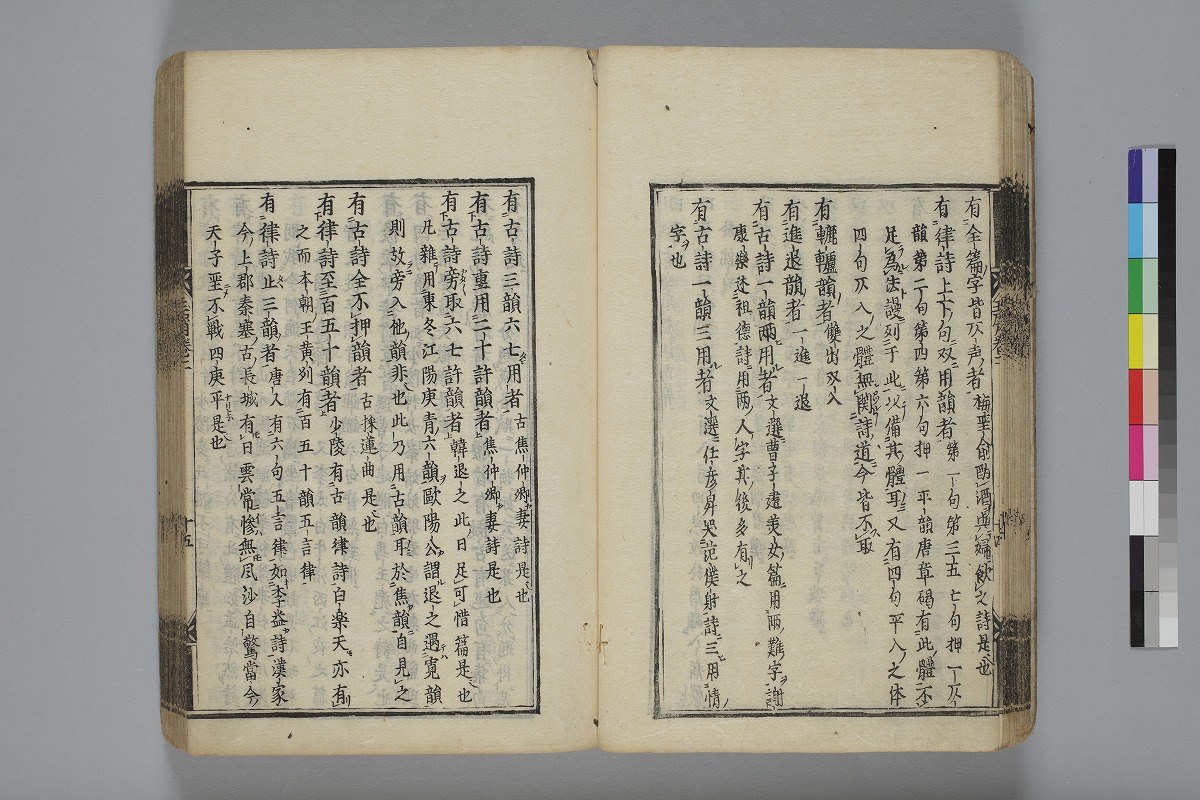 有全篇字皆仄声者梅聖俞酌酒與婦飲之詩是也
有律詩上下句双用韻者第一句第三五七句押一仄
韻第二句第四第六句押一平韻唐章碣有此體不
足為法謾列于此以備其體耳又有四句平入之体
四句仄入之體無関詩道今皆不取
有轆轤韻者雙出双入
有進退韻者一進一退
有古詩一韻兩用者文選曹子建美女篇用兩難字謝
康樂述祖德詩用兩人字其後多有之
有古詩一韻三用者文選任彦昇哭范僕射詩三用情
字也
有古詩三韻六七用者古焦仲卿妻詩是也
有古詩重用二十許韻者焦仲卿妻詩是也
有古詩旁取六七許韻者韓退之此日足可惜篇是也
凡雜用東冬江陽庚青六韻歐陽公謂退之遇寛韻
則故旁入他韻非也此乃用古韻耳於焦韻自見之
有古詩全不押韻者古採蓮曲是也
有律詩至百五十韻者少陵有古韻律詩白楽天亦有
之而本朝王黄列有百五十韻五言律
有律詩止三韻者唐人有六句五言律如李益詩漢家
今上郡秦塞古長城有日雲常惨無風沙自驚當今
天子聖不戰四庚平是也
十五